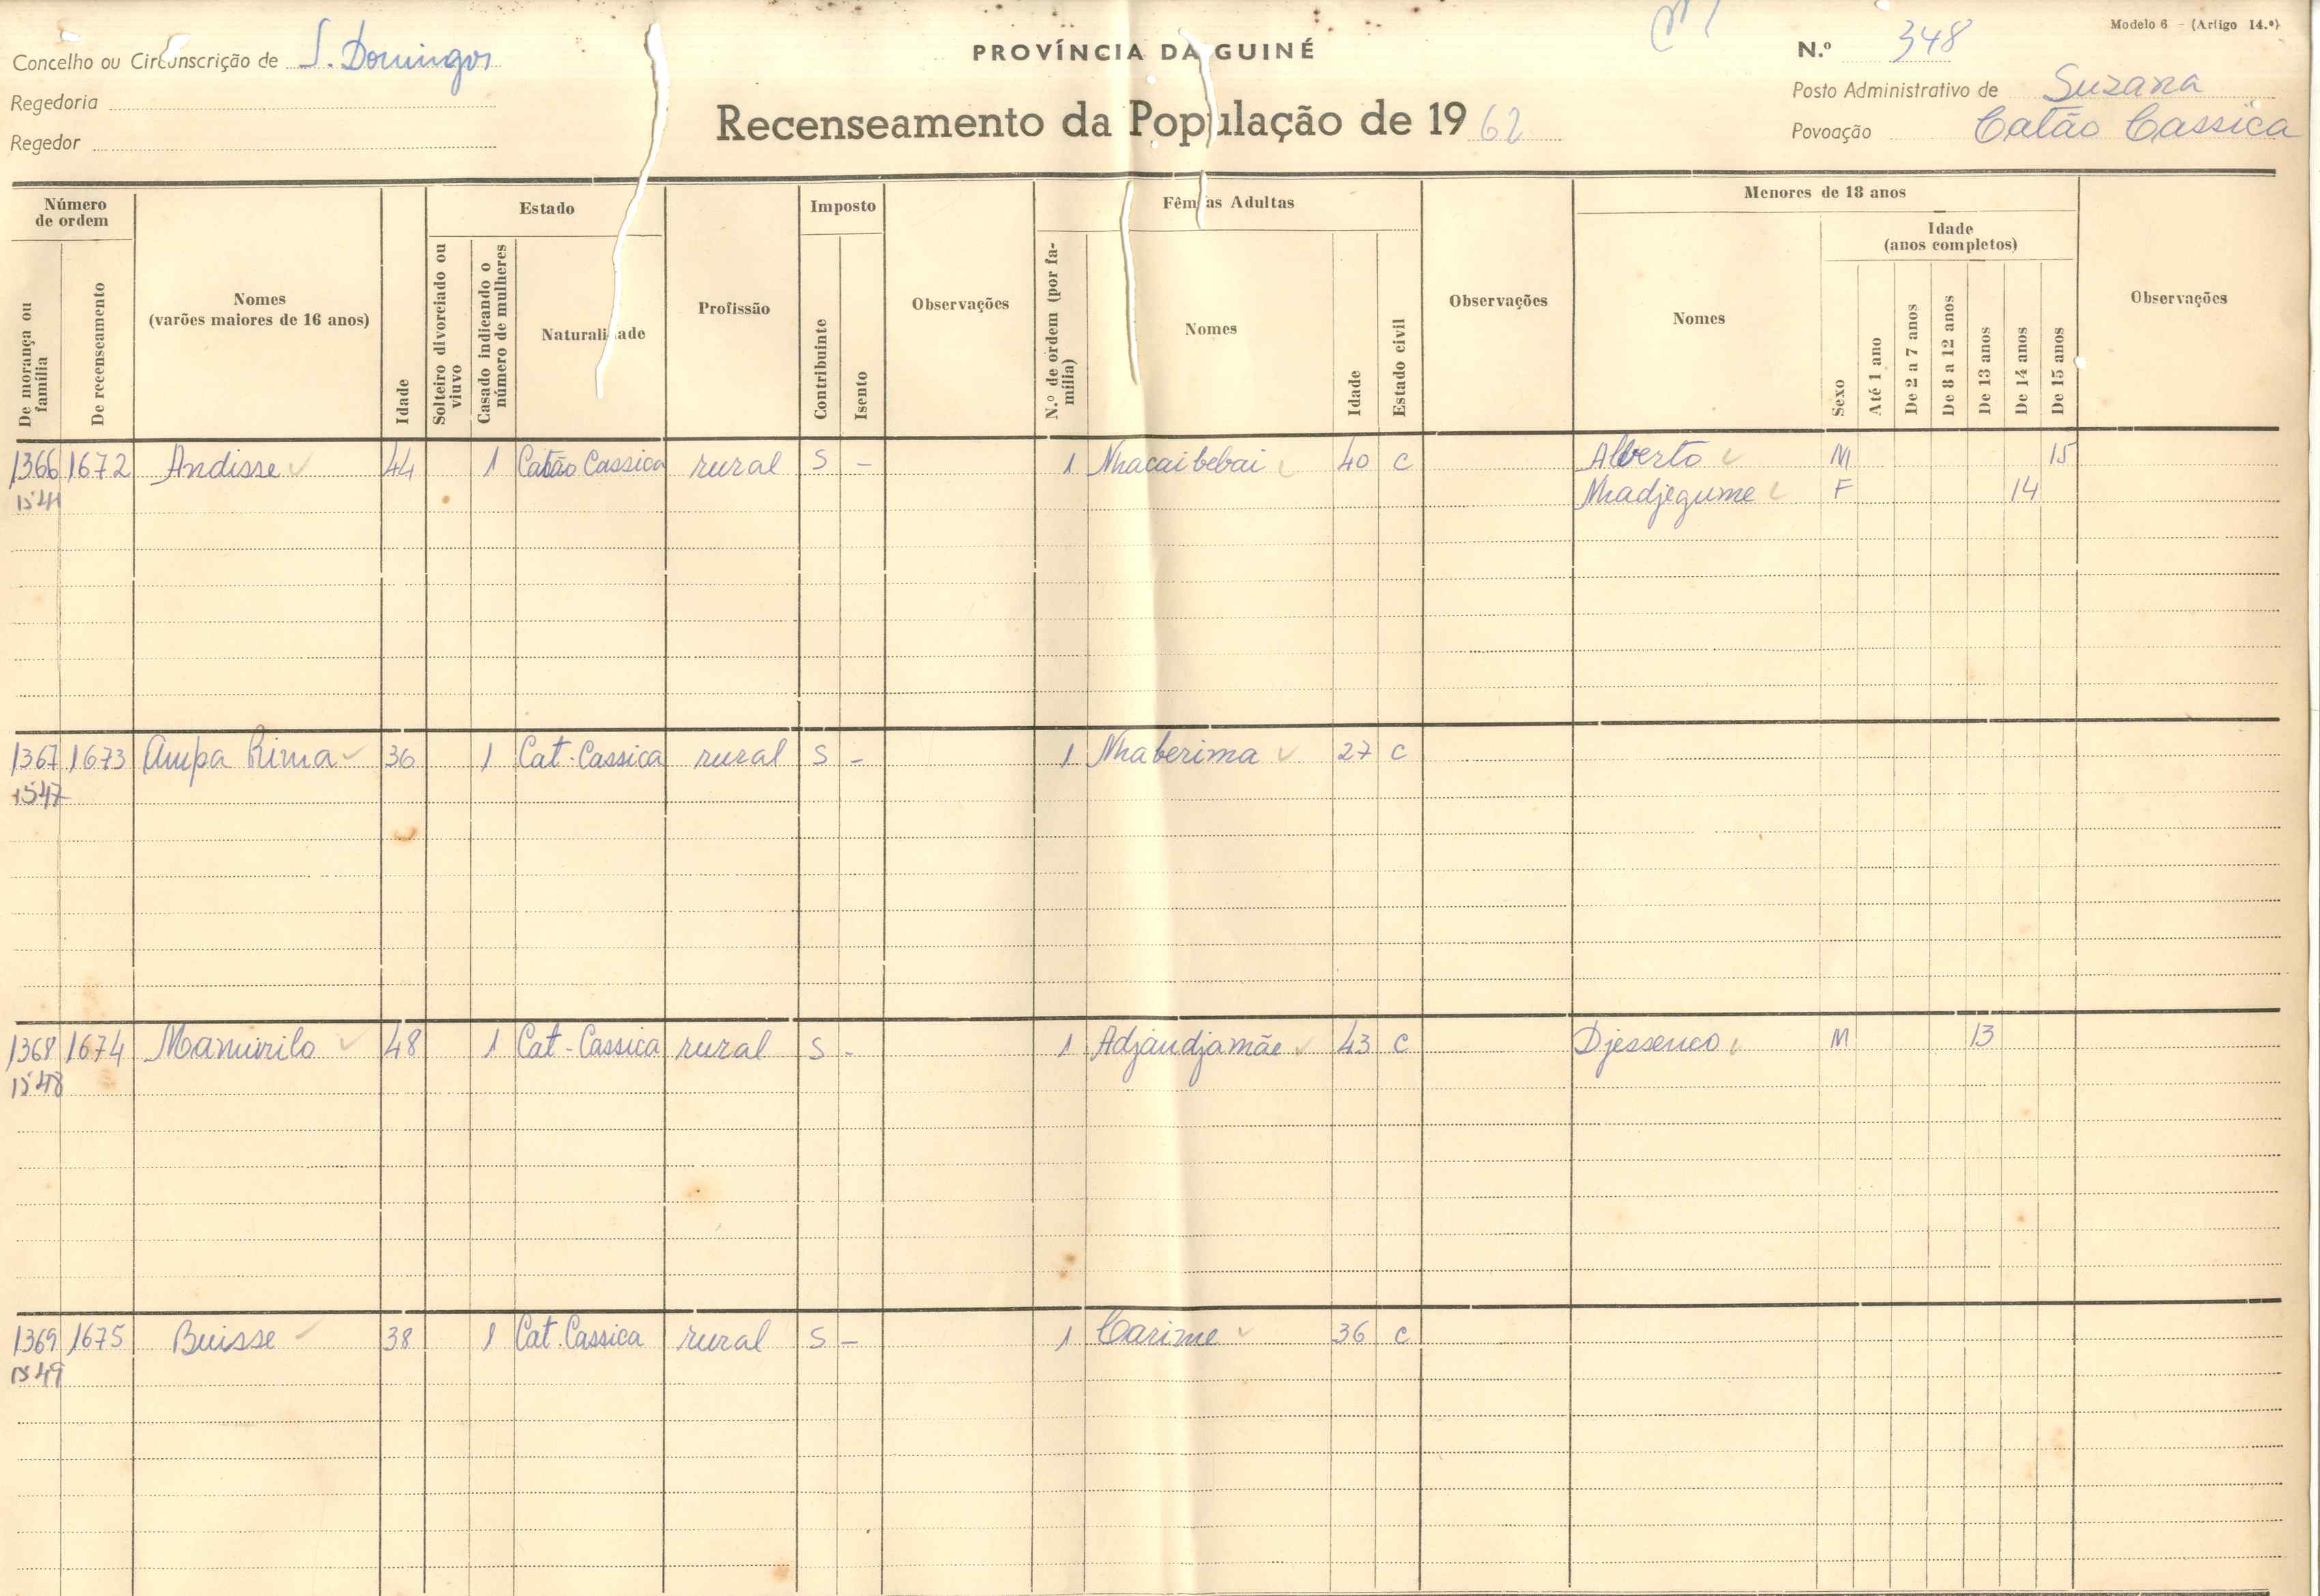 Modelo 6 - (Artigo 14.º)
Concelho ou Circunscrição de S. Domingos
PROVÍNCIA DA GUINÉ
N.º 348
Regedoria
Posto Administrativo de Suzana
Regedor
Recenseamento da População de 1962
Povoação Catão Cassica
Número de ordem
Estado
Imposto
Fêmeas Adultas
Menores de 18 anos
De morança ou família
De recenseamento
Nomes (varões maiores de 16 anos)
Idade
Solteiro divorciado ou viuvo
Casado indicando o número de mulheres
Naturalidade
Profissão
Contribuinte
Isento
Observações
N.º de ordem (por família)
Nomes
Idade
Estado civil
Observações
Nomes
Sexo
Idade (anos completos)
Até 1 ano
De 2 a 7 anos
De 8 a 12 anos
De 13 anos
De 14 anos
De 15 anos
Observações
1366 1672 Andisse 44 1 Catão Cassica rural S - 1 Nhacaibebai 40 C Alberto M 15
Nhadjegume F 14
1367 1673 Ampa Rima 36 1 Cat-Cassica rural S - 1 Nhaberima 27 C
1547
1368 1674 Mamurilo 48 1 Cat-Cassica rural S - 1 Adjandjamãe 43 C Djessenco M 13
1548
1369 1675 Buisse 38 1 Cat.Cassica rural S - 1 Carime 36 C
1549